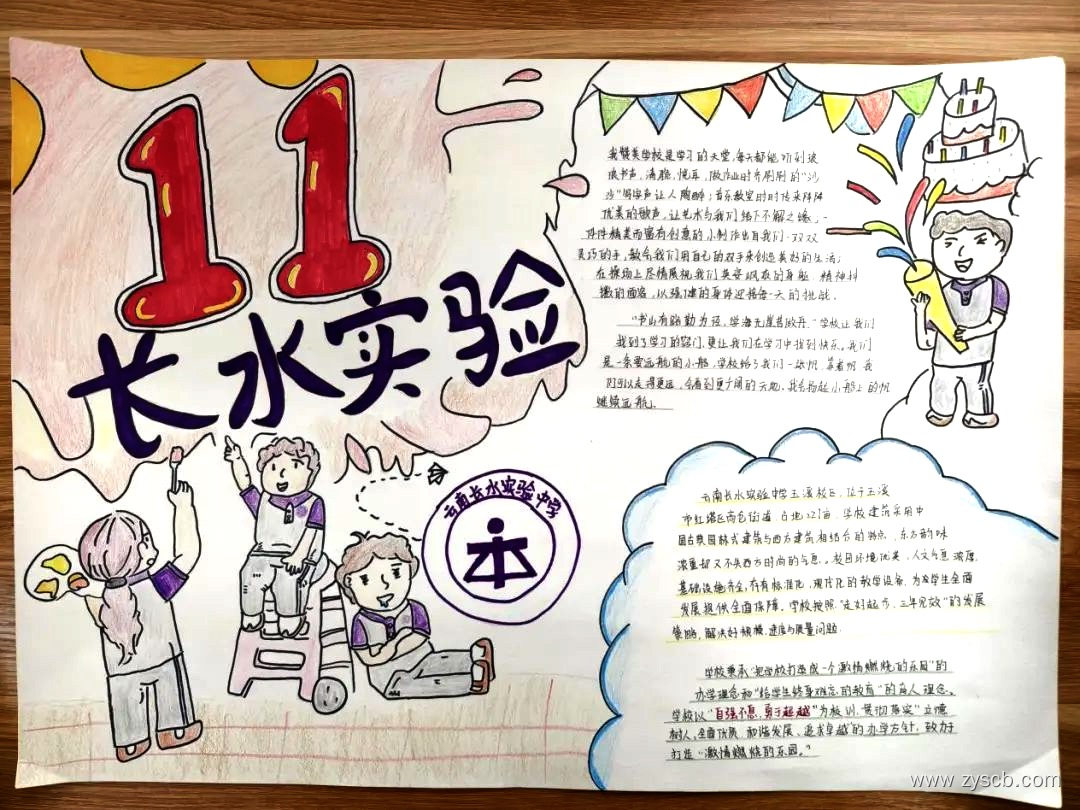 11
长水实验
我赞美学校是学习的天堂,每天都能听到琅
琅书声,清脆,悦耳,做作业时齐刷刷的“沙
沙”写字声让人陶醉;音乐教室时时传来阵阵
优美的歌声,让艺术与我们结下不解之缘,一
件件精美而富有创意的小制作出自我们一双双
灵巧的手,教会我们用自己的双手来创造美好的生活;
在操场上尽情展现我们英姿飒爽的身躯,精神抖
擞的面容,以强健的身体迎接每一天的挑战.
“书山有路勤为径,学海无崖苦做舟.”学校让我们
找到了学习的窍门,更让我们在学习中找到快乐.我们
是一条要远航的小船,学校给予我们一张帆,靠着帆我
们可以走得更远,会看到更广阔的天地.我会扬起小船上的帆
继续远航.
云南长水实验中学
云南长水实验中学玉溪校区,位于玉溪
市红塔区高仓街道,占地221亩.学校建筑采用中
国古典园林式建筑与西方建筑相结合的特点,东方韵味
浓重却又不失西方时尚的气息,校园环境优美,人文气息浓厚.
基础设施齐全,有标准化,现代化的教学设备,为学生全面
发展提供全面保障.学校按照“走好起步,三年见效”的发展
策略,解决好规模,速度与质量问题.
学校秉承“把学校打造成一个激情燃烧的乐园”的
办学理念和“给学生终身难忘的教育”的育人理念。
学校以“自强不息,勇于超越”为校训,贯彻落实“立德
树人,全面优质,和谐发展,追求卓越”的办学方针,致力于
打造“激情燃烧的乐园。”
www.zyscb.com